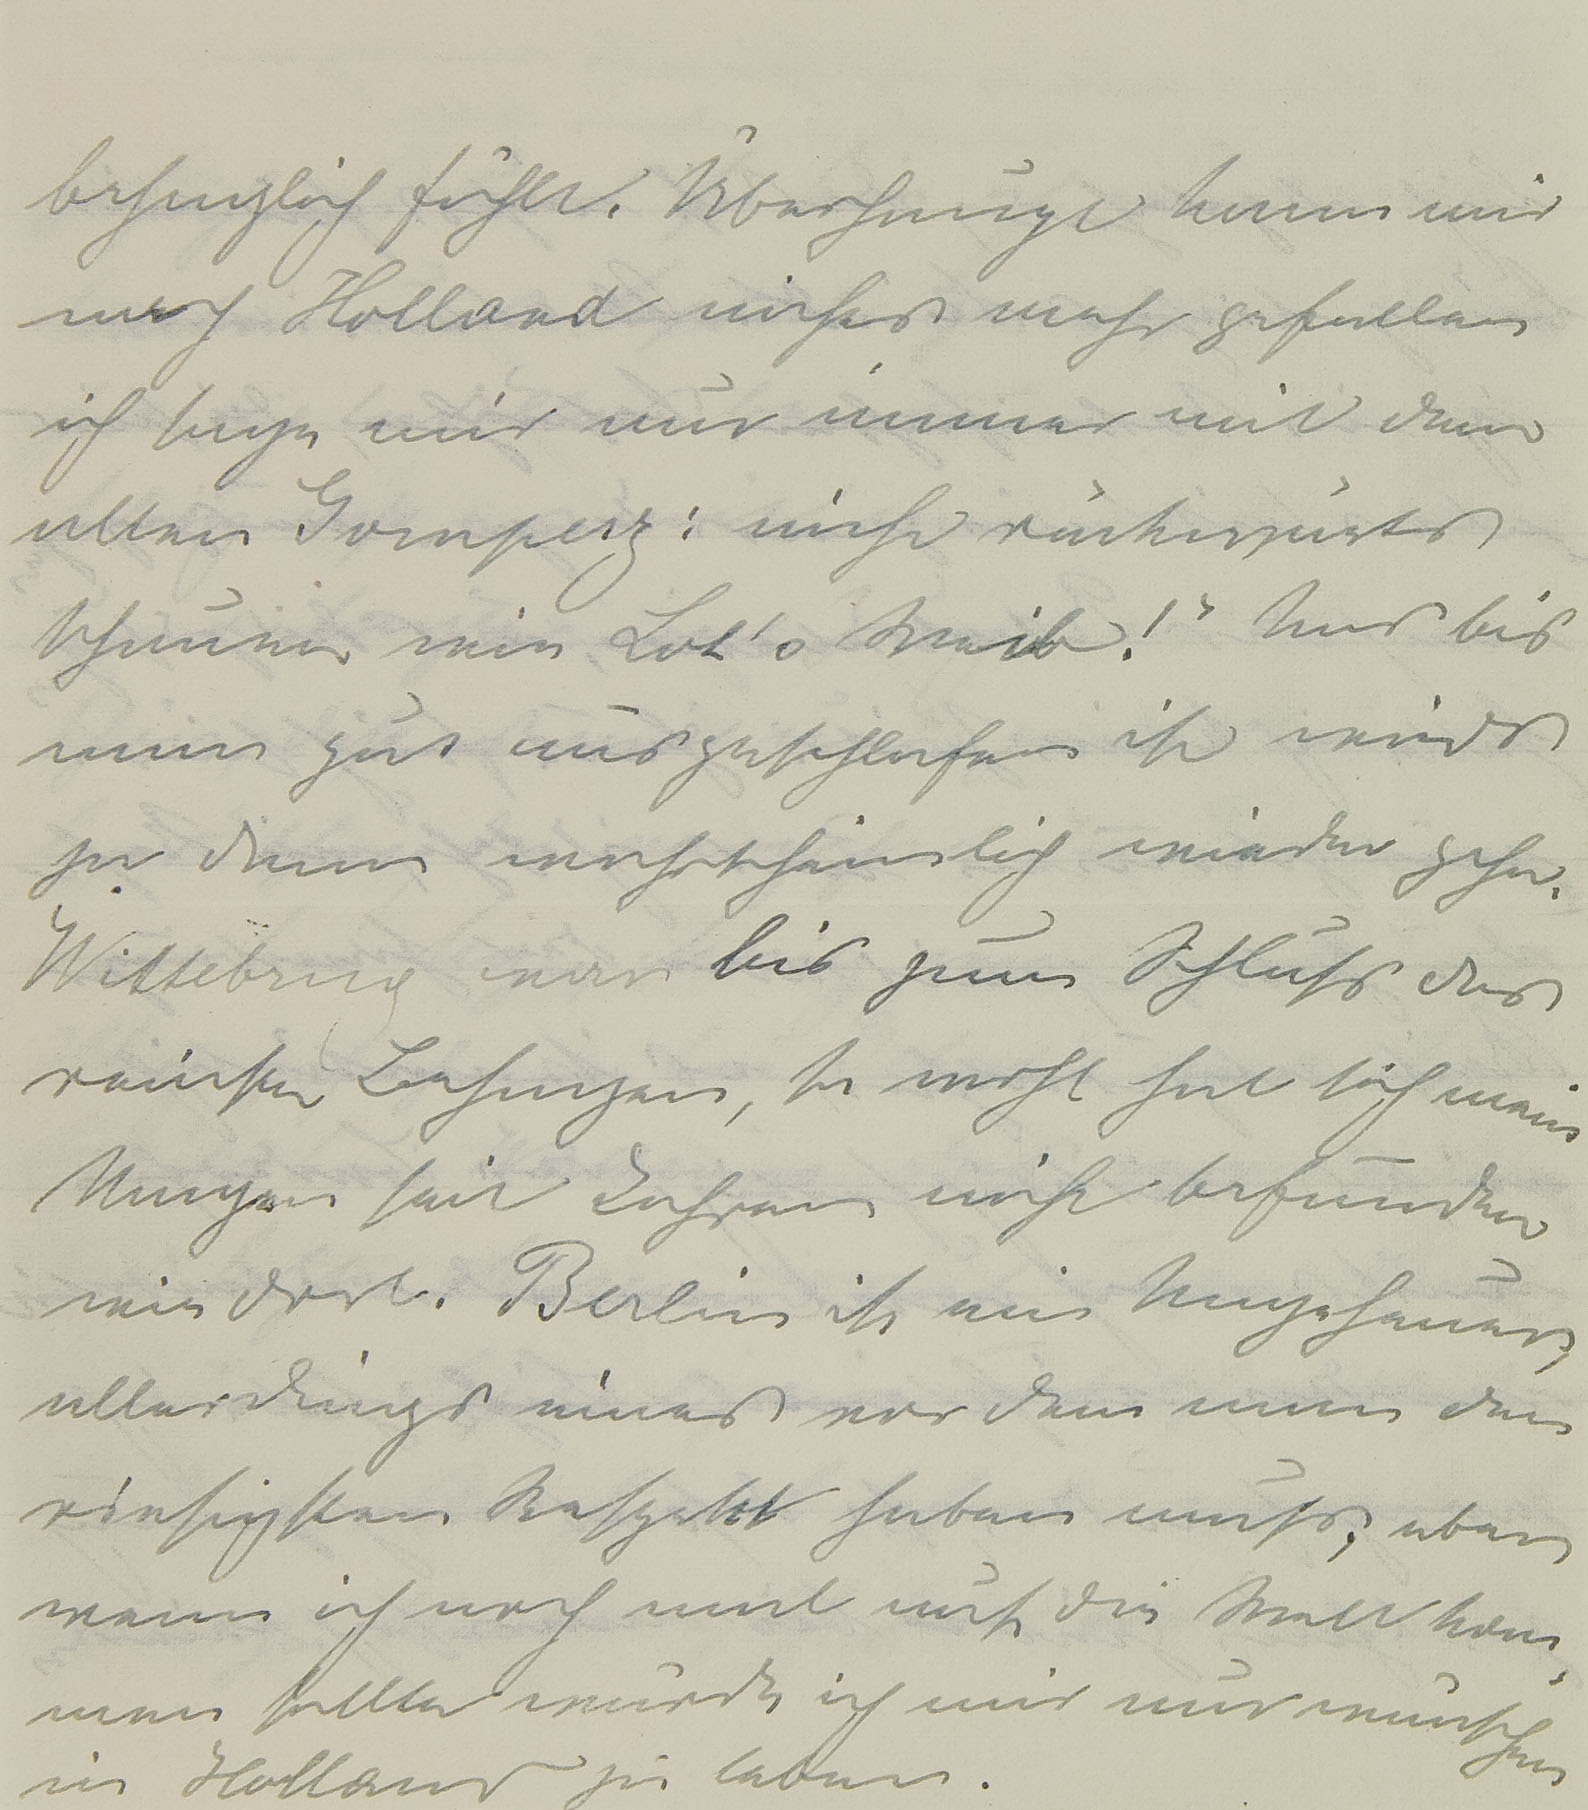 behaglich fühlt. Überhaupt kann mir
nach Holland nichts mehr gefallen
ich sage mir nur immer mit dem
alten Gomperz: nicht rückwärts
schauen wie Lot's Weib!" Und bis
man gut ausgeschlafen ist wirds
ja dann wahrscheinlich wieder gehn.
Wittebrug war bis zum Schluss das
reinste Behagen, so wohl hat sich mein
Magen seit Jahren nicht befunden
wie dort. Berlin ist ein Ungeheuer,
allerdings eines vor dem man den
riesigsten Respekt haben muss, aber
wenn ich noch mal auf die Welt kom-
men sollte würde ich mir nur wünschen
in Holland zu leben.